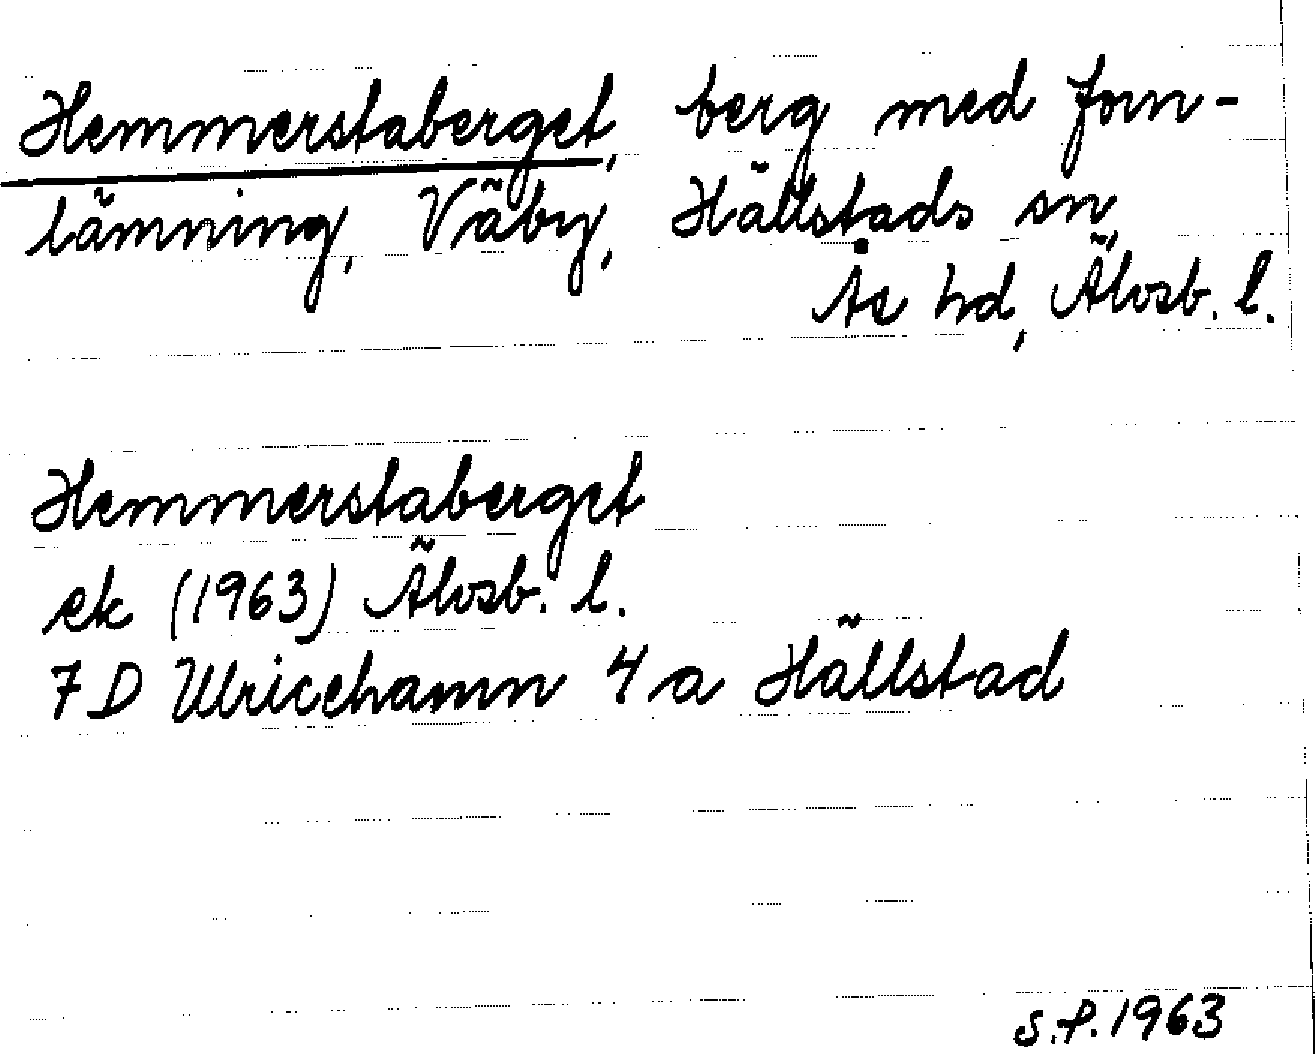 Hemmerstaberget, berg med forn-
lämning, Väby, Hällstads sn,
Ås hd, Älvsb. l.
Hemmerstaberget
ek (1963) Älvsb. l.
7 D Ulricehamn 4 a Hällstad
S.P. 1963